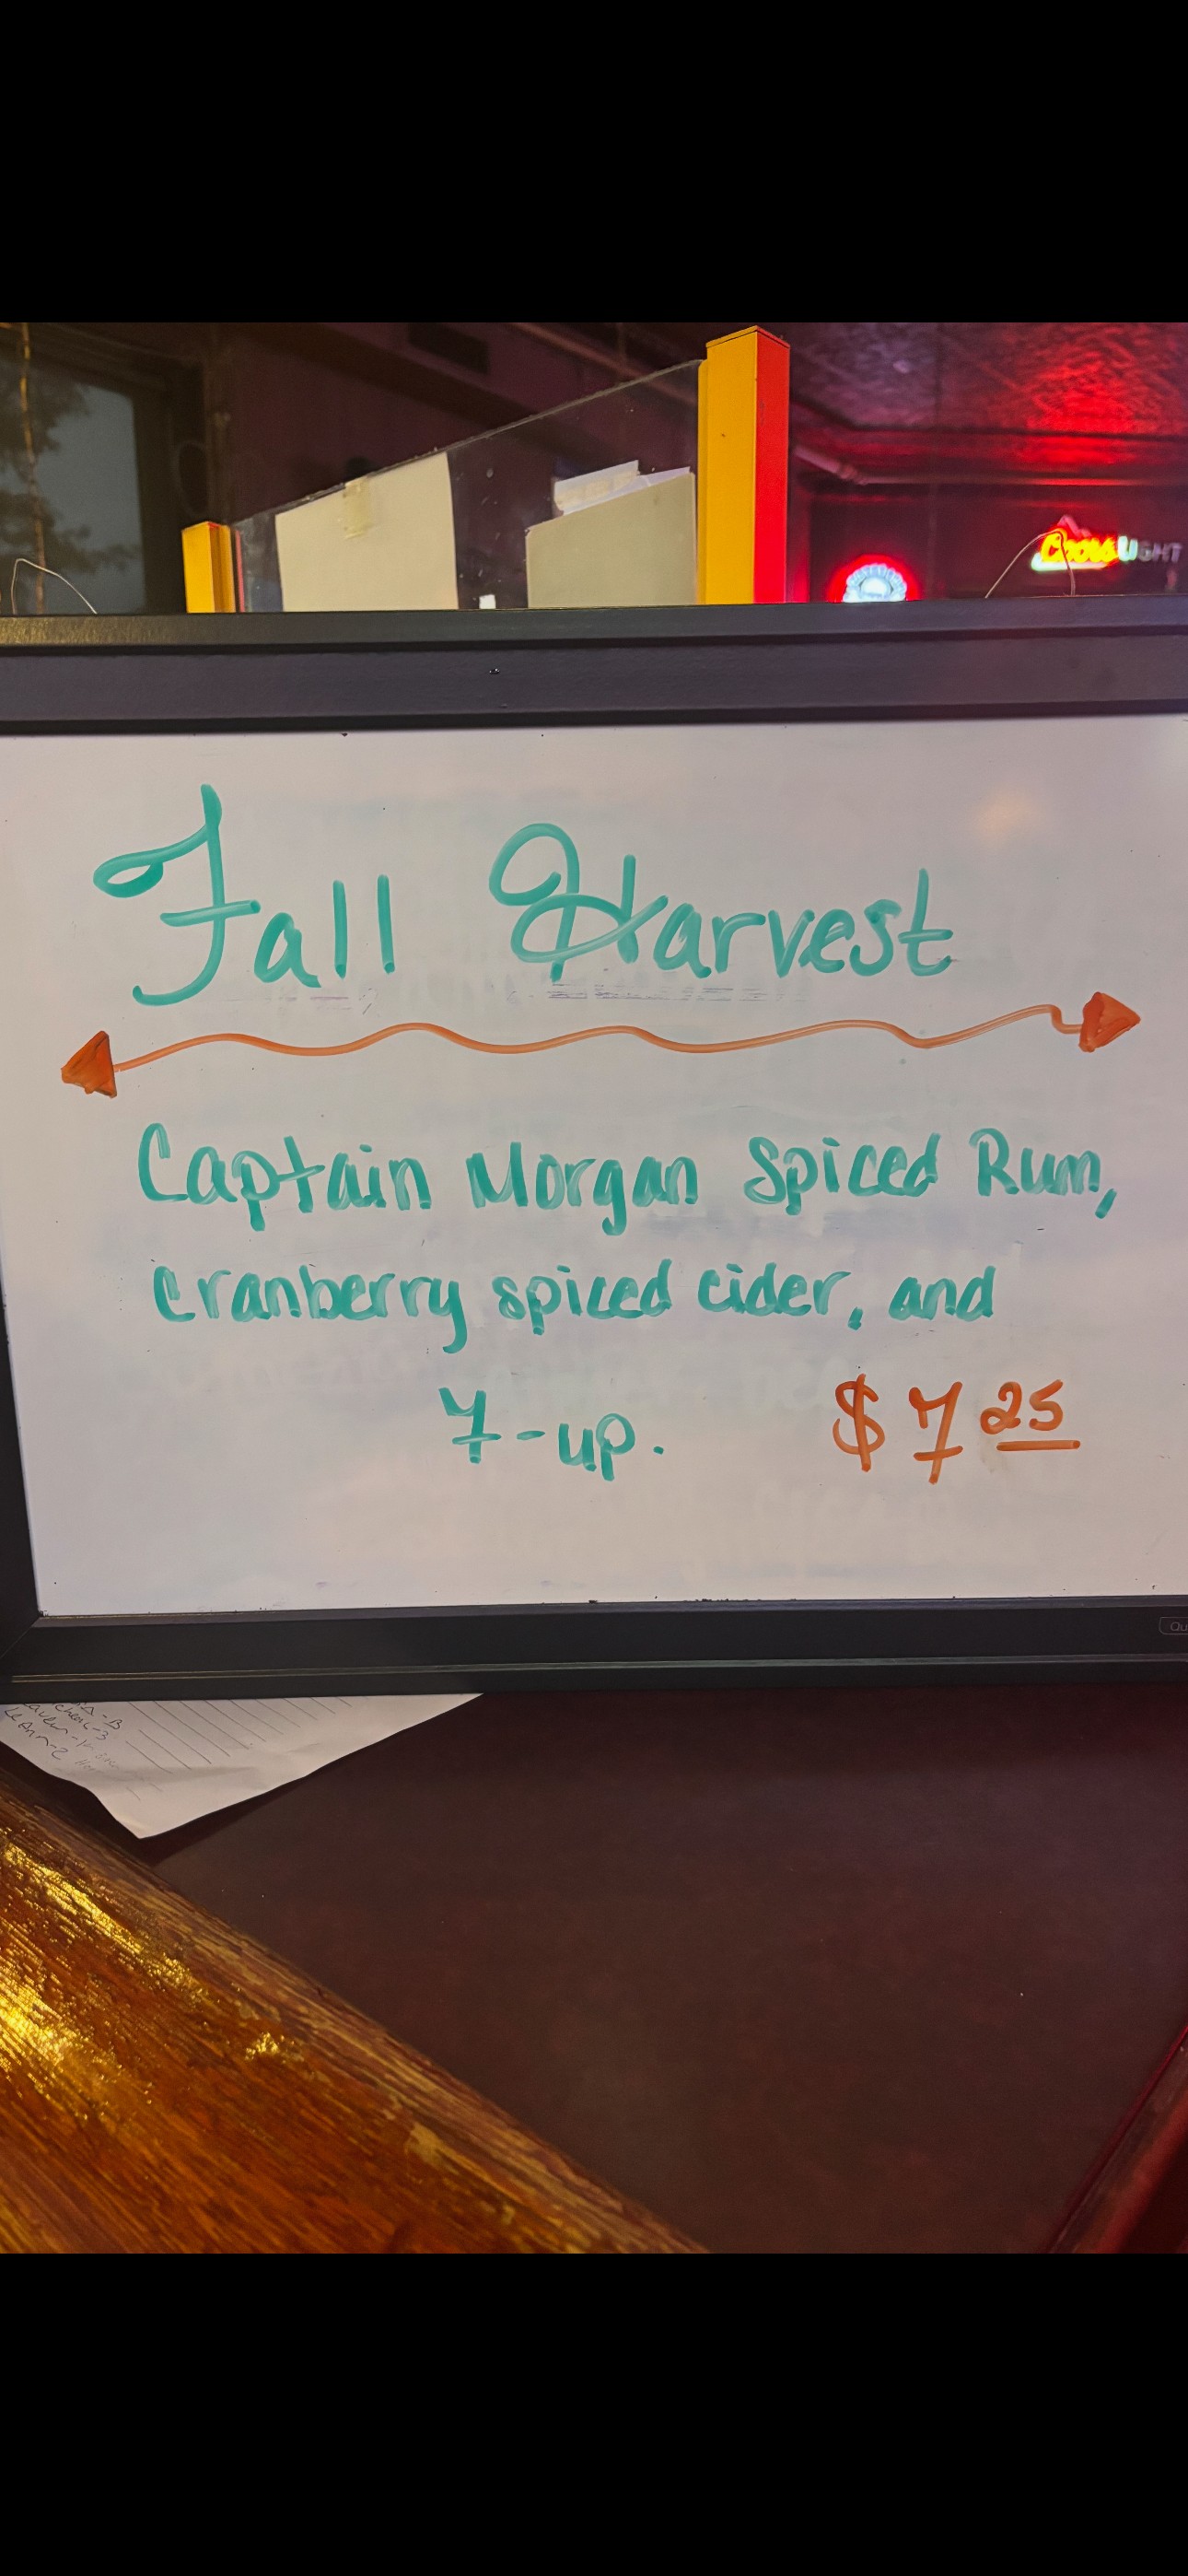 Coors LIGHT
Fall Harvest
Captain Morgan Spiced Rum,
cranberry spiced cider, and
7-up. $7 25